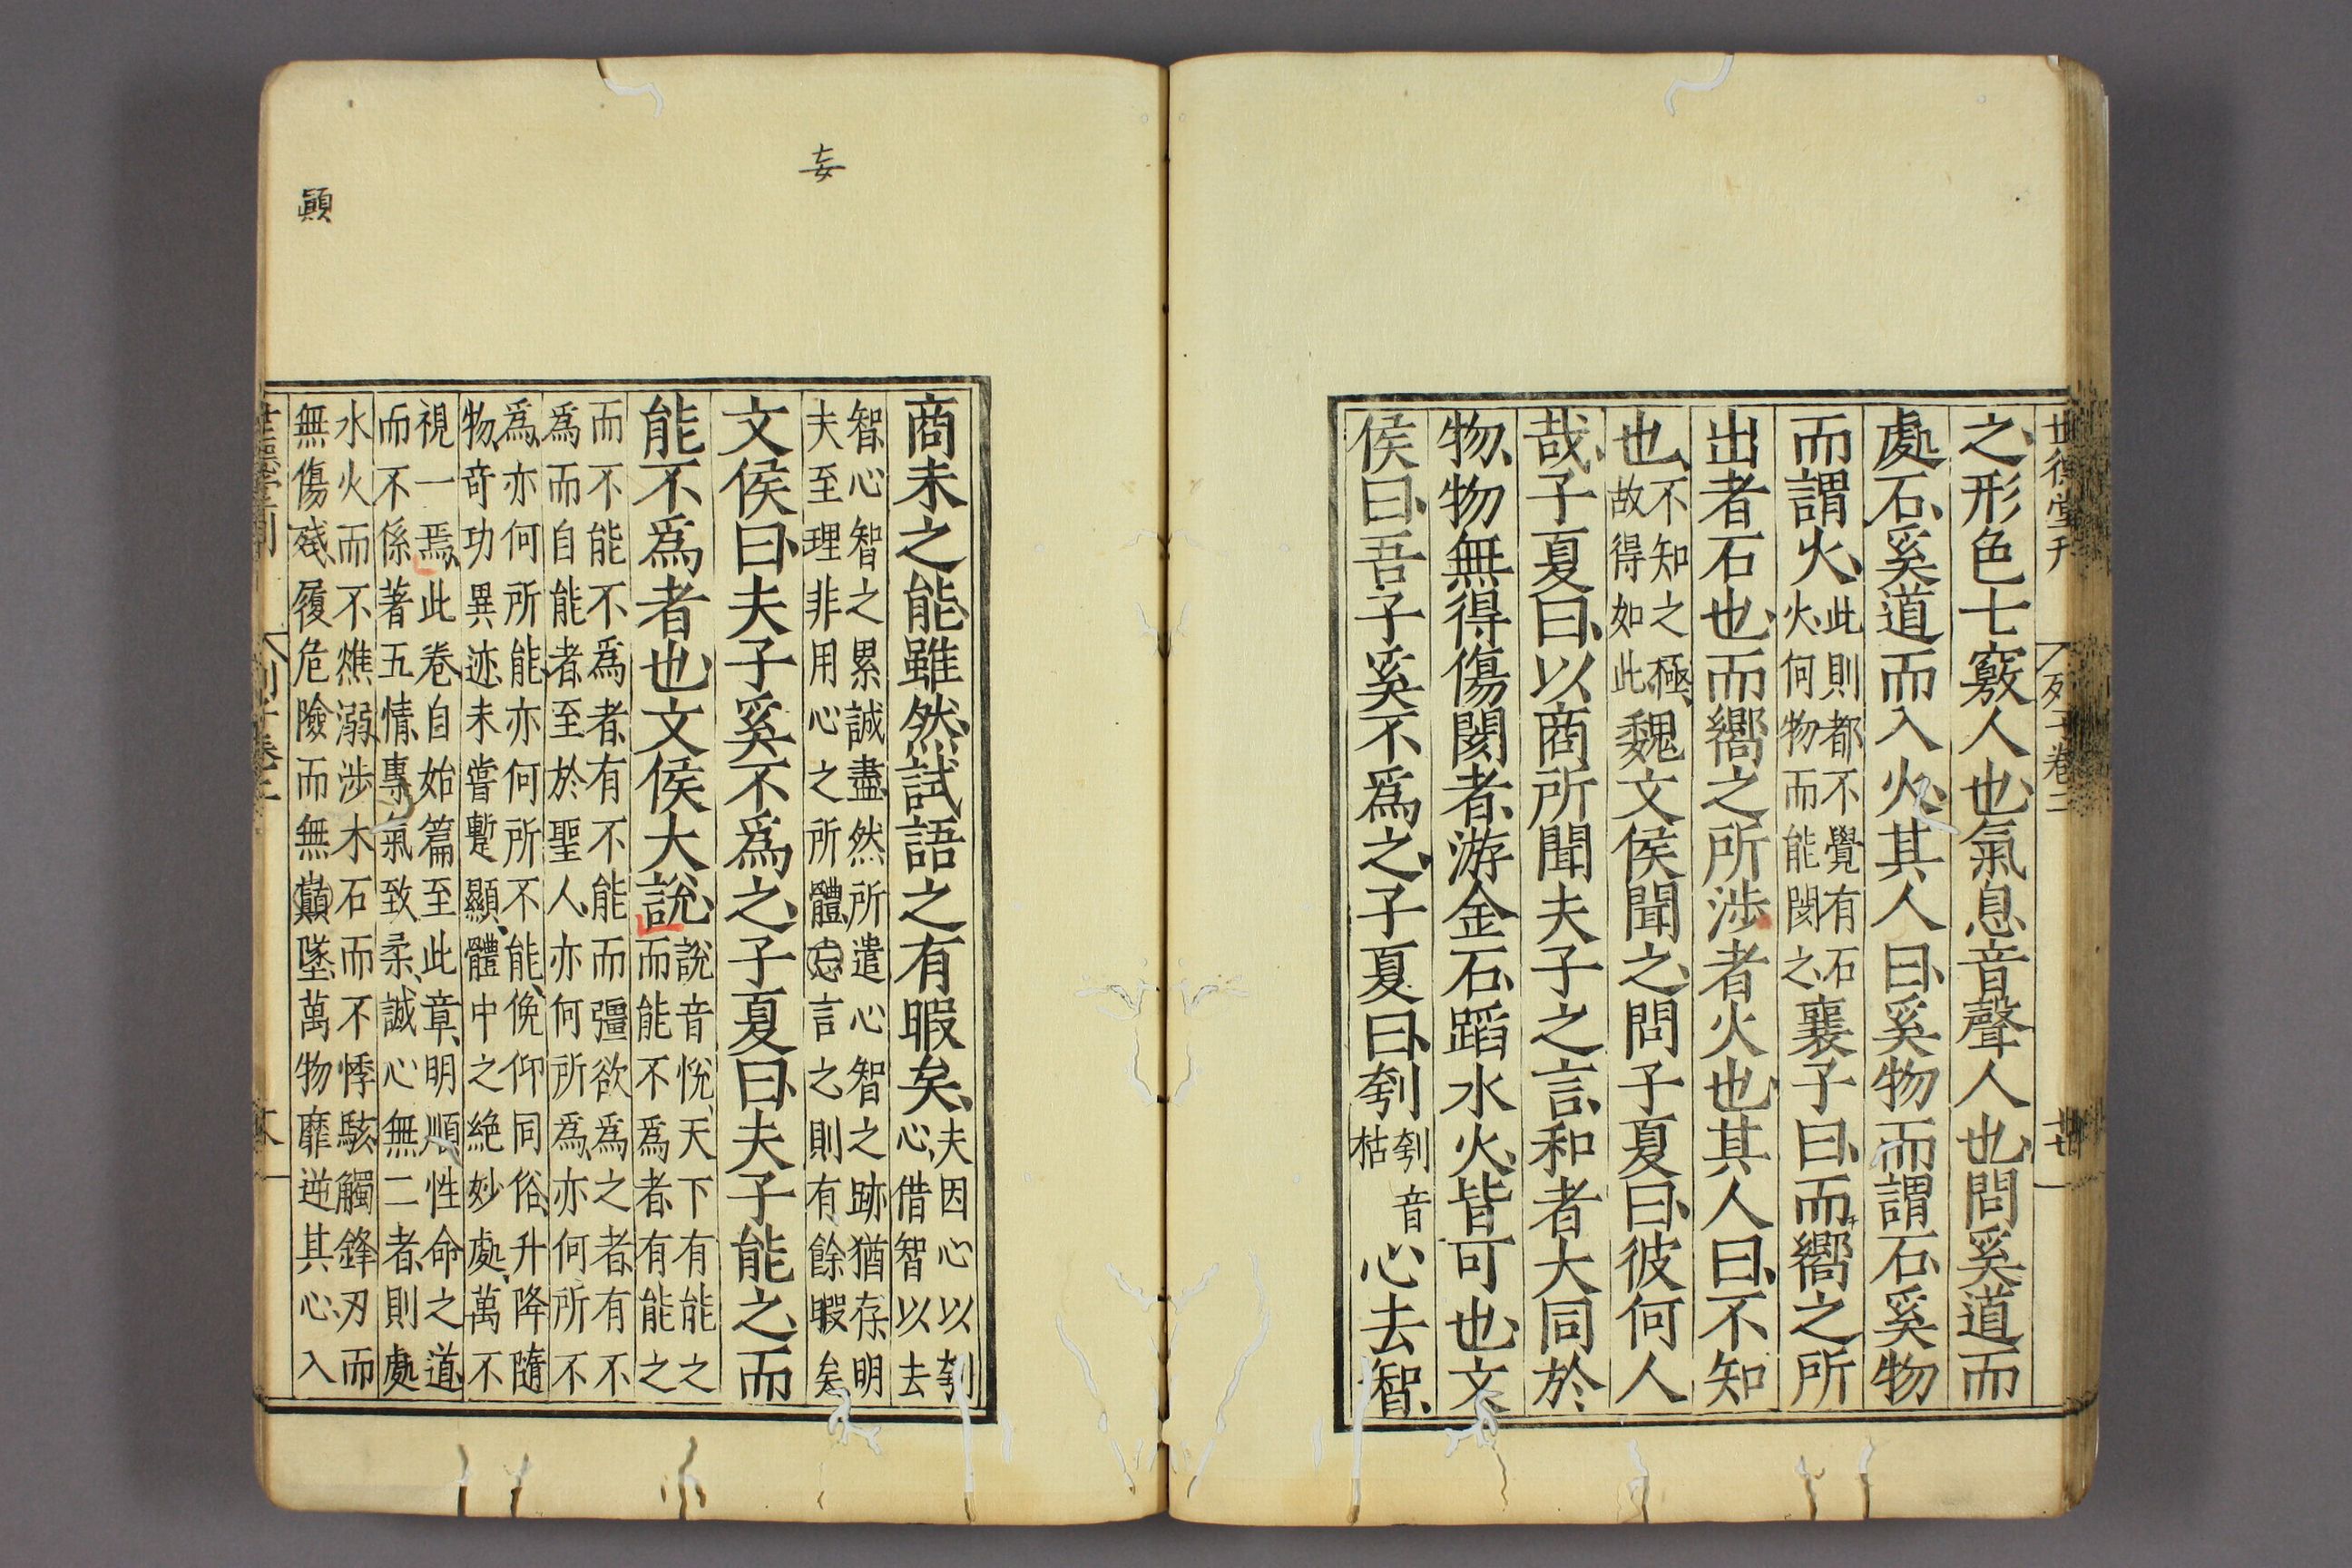 世德堂刊 列子卷二 廿七
之形色七竅人也氣息音聲人也問奚道而
處石奚道而入火其人曰奚物而謂石奚物
而謂火此則都不覺有石火何物而能閡之襄子曰而嚮之所
出者石也而嚮之所涉者火也其人曰不知
也不知之極故得如此魏文侯聞之問子夏曰彼何人
哉子夏曰以商所聞夫子之言和者大同於
物物無得傷閡者游金石蹈水火皆可也文
侯曰吾子奚不爲之子夏曰刳刳音枯心去智
商未之能雖然試語之有暇矣夫因心以刳心借智以去
智心智之累誠盡然所遣心智之跡猶存明
夫至理非用心之所體忘言之則有餘暇矣
文侯曰夫子奚不爲之子夏曰夫子能之而
能不爲者也文侯大說說音悅天下有能之而能不爲者有能之
而不能不爲者有不能而彊欲爲之者有不
爲而自能者至於聖人亦何所爲亦何所不
爲亦何所能亦何所不能俛仰同俗升降隨
物奇功異迹未嘗蹔顯體中之絶妙處萬不
視一焉此卷自始篇至此章明順性命之道
而不係著五情專氣致柔誠心無二者則處
水火而不燋溺涉木石而不悸駭觸鋒刃而
無傷殘履危險而無巔墜萬物靡逆其心入
妄
顚